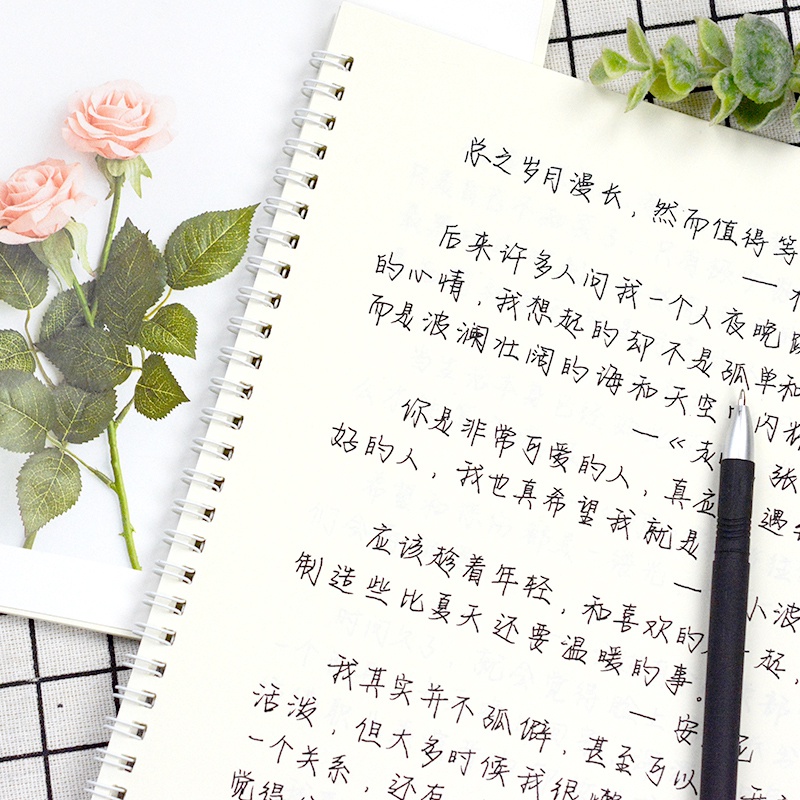 总之岁月漫长，然而值得等
后来许多人问我一个人夜晚
的心情，我想起的却不是孤单和
而是波澜壮阔的海和天空
《 张
你是非常可爱的人，真应 遇
好的人，我也真希望我就是
小波
应该趁着年轻，和喜欢的人一起，
制造些比夏天还要温暖的事。
安
我其实并不孤僻，甚至可以
活泼，但大多时候我很懒
一个关系，还有
觉得